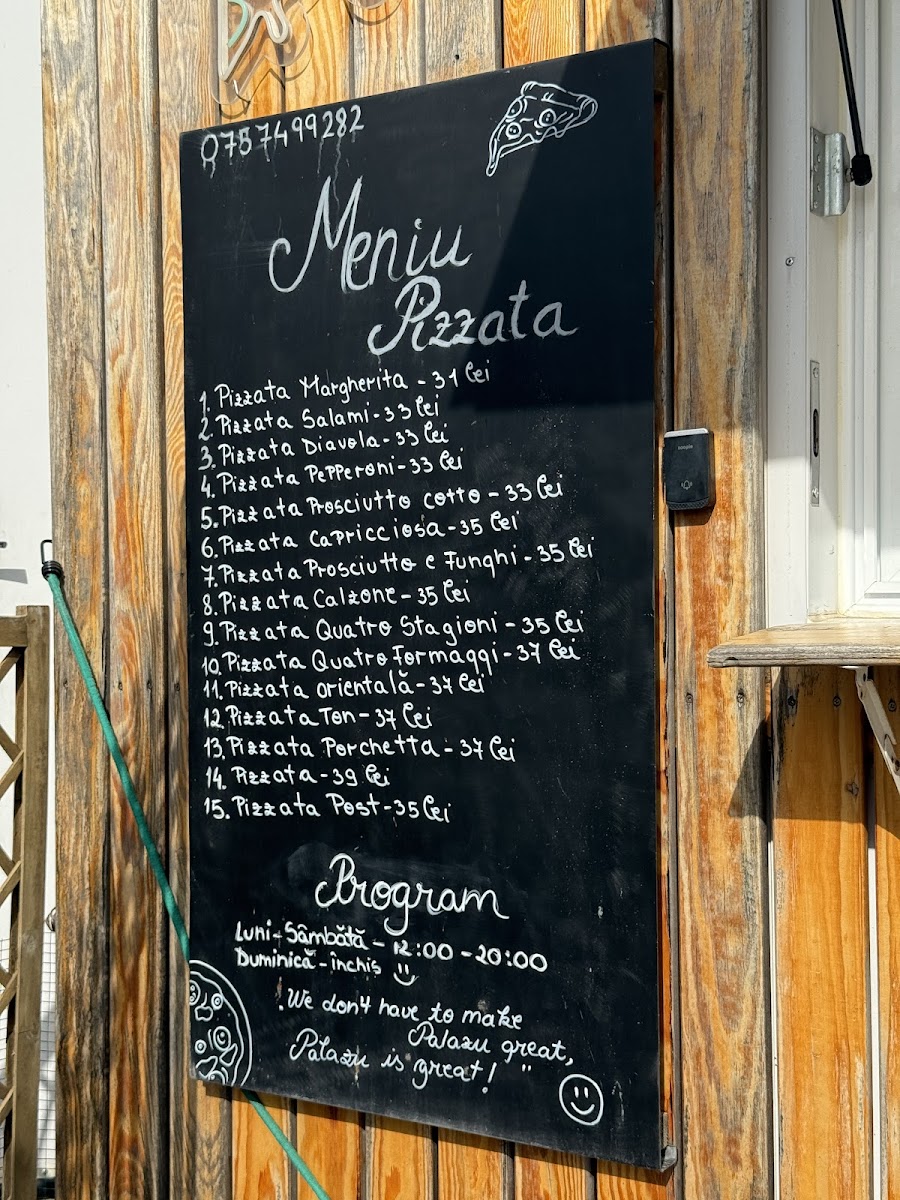 0757499282
Meniu
Pizzata
1. Pizzata Margherita - 31 lei
2. Pizzata Salami - 33 lei
3. Pizzata Diavola - 33 lei
4. Pizzata Pepperoni - 33 lei
5. Pizzata Prosciutto cotto - 33 lei
6. Pizzata Capricciosa - 35 lei
7. Pizzata Prosciutto e Funghi - 35 lei
8. Pizzata Calzone - 35 lei
9. Pizzata Quatro Stagioni - 35 lei
10. Pizzata Quatro Formaggi - 37 lei
11. Pizzata orientală - 37 lei
12. Pizzata Ton - 37 lei
13. Pizzata Porchetta - 37 lei
14. Pizzata - 39 lei
15. Pizzata Post - 35 lei
Program
Luni - Sâmbătă - 12:00 - 20:00
Duminică - închis
"We don't have to make
Palazu great,
Palazu is great! "